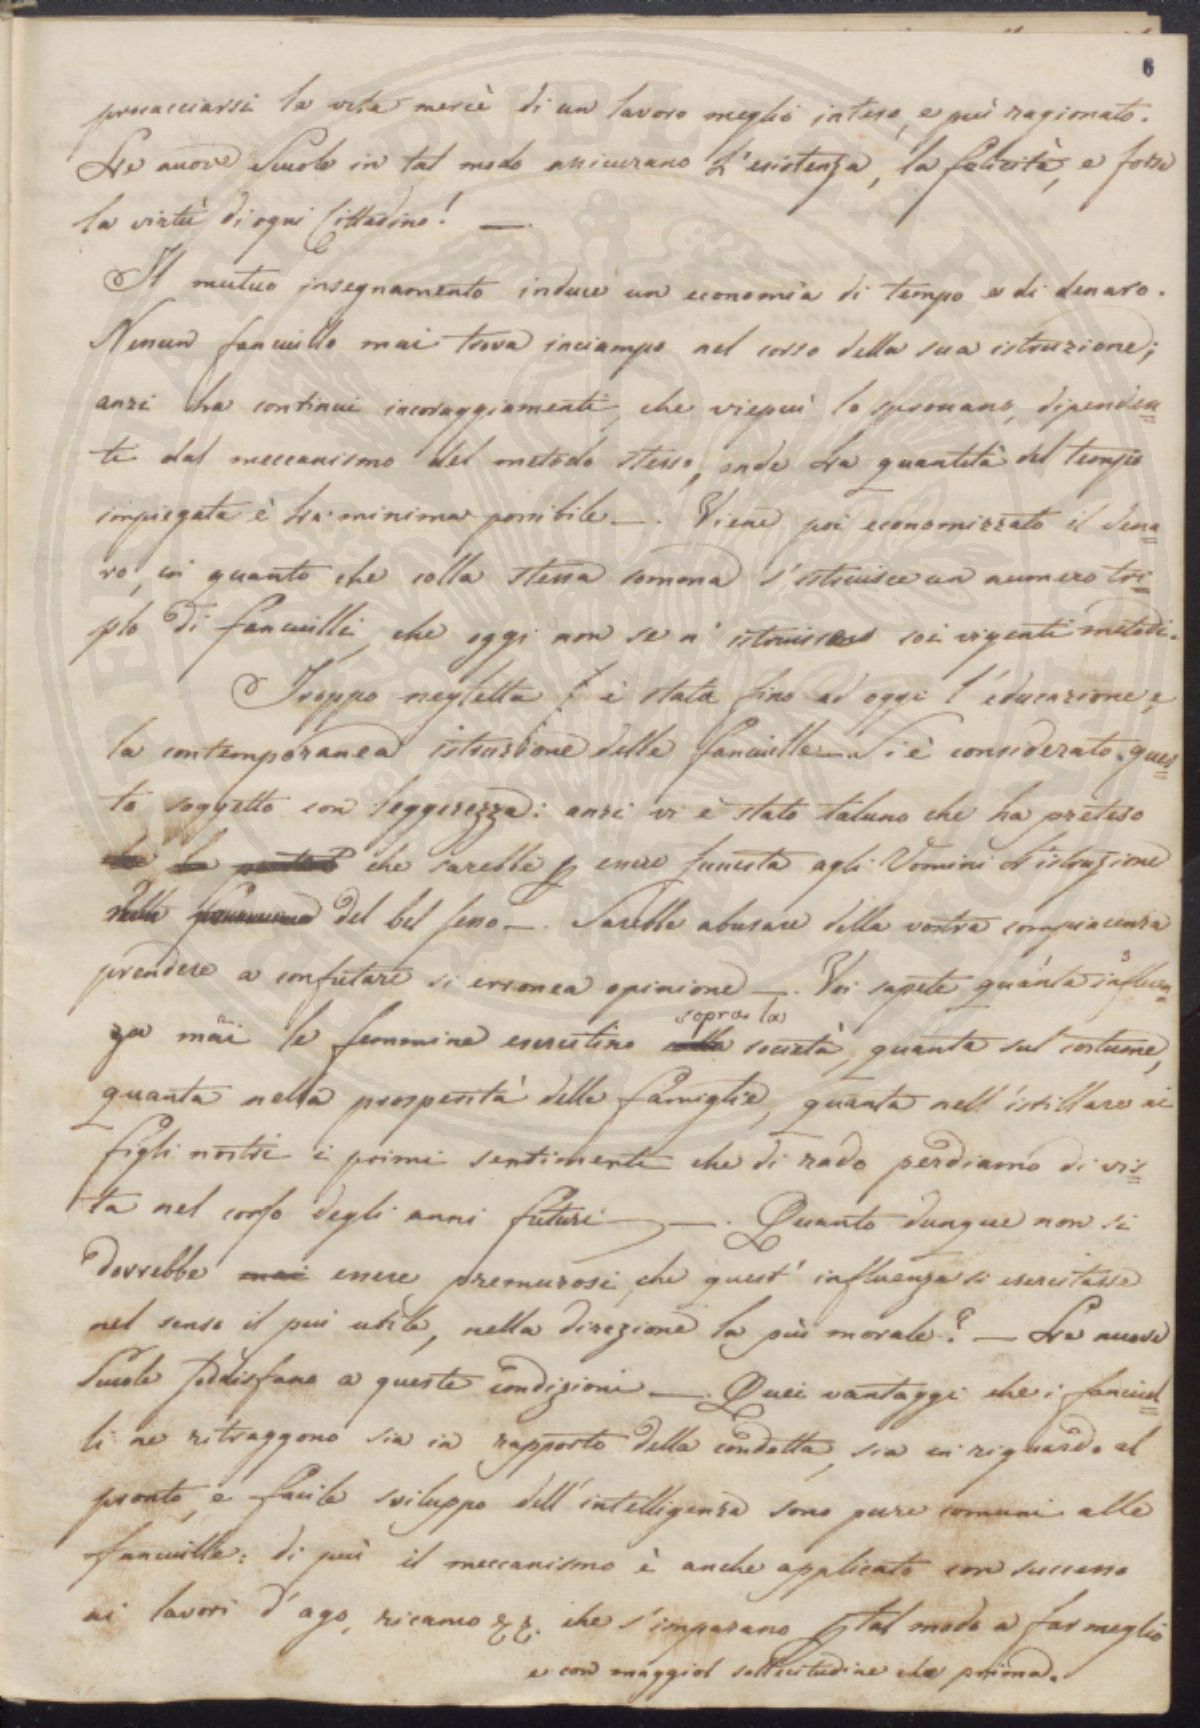 6
procacciarsi la vita mercè di un lavoro meglio inteso, e più ragionato.
Le nuove Scuole in tal modo assicurano l'esistenza, la felicità, e forse
la virtù di ogni Cittadino! —.
Il mutuo insegnamento induce un economia di tempo e di denaro.
Nessun fanciullo mai trova inciampo nel corso della sua istruzione;
anzi ha continui incoraggiamenti, che viepiù lo spronano, dipenden
ti dal meccanismo del metodo stesso, onde la quantità del tempo
impiegata è la minima possibile —. Viene poi economizzato il dena
ro, in quanto che colla stessa somma s'istruisce un numero tri
plo di fanciulli, che oggi non se n'istruiscono coi vigenti metodi.
Troppo negletta è stata fino ad oggi l'educazione, e
la contemporanea istruzione delle fanciulle —. Si è considerato ques
to soggetto con leggerezza: anzi vi è stato taluno che ha preteso
che la che sarebbe p essere funesta agli Uomini l'istruzione
della del bel sesso —. Sarebbe abusare della vostra compiacenza
prendere a confutare si erronea opinione —. Voi sapete quanta influen
za mai le femmine esercitino sulla società, quanta sul costume,
sopra la
quanta nella prosperità delle famiglie, quanta nell'istillare ai
figli nostri i primi sentimenti che di rado perdiamo di vis
ta nel corso degli anni futuri —. Quanto dunque non si
dovrebbe mai essere premurosi, che quest'influenza si esercitasse
nel senso il piu utile, nella direzione la più morale? — Le nuove
Scuole soddisfano a queste condizioni —. Quei vantaggi che i fanciul
li ne ritraggono sia in rapporto della condotta, sia in riguardo al
pronto, e facile sviluppo dell'intelligenza sono pure comuni alle
fanciulle: di più il meccanismo è anche applicato con successo
ai lavori d'ago, ricamo &&. che s'imparano p tal modo a far meglio
e con maggior sollecitudine che prima.